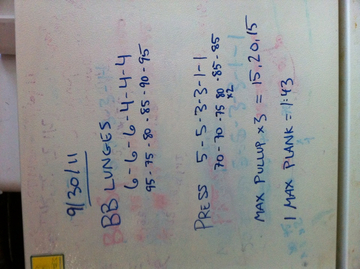 9/30/11
BB LUNGES
6-6-6-4-4-4
95-75-80-85-90-95
PRESS 5-5-3-3-1-1
70-70-75-80-85-85
x2
MAX PULLUP x3 = 15, 20, 15
1 MAX PLANK = 1:43